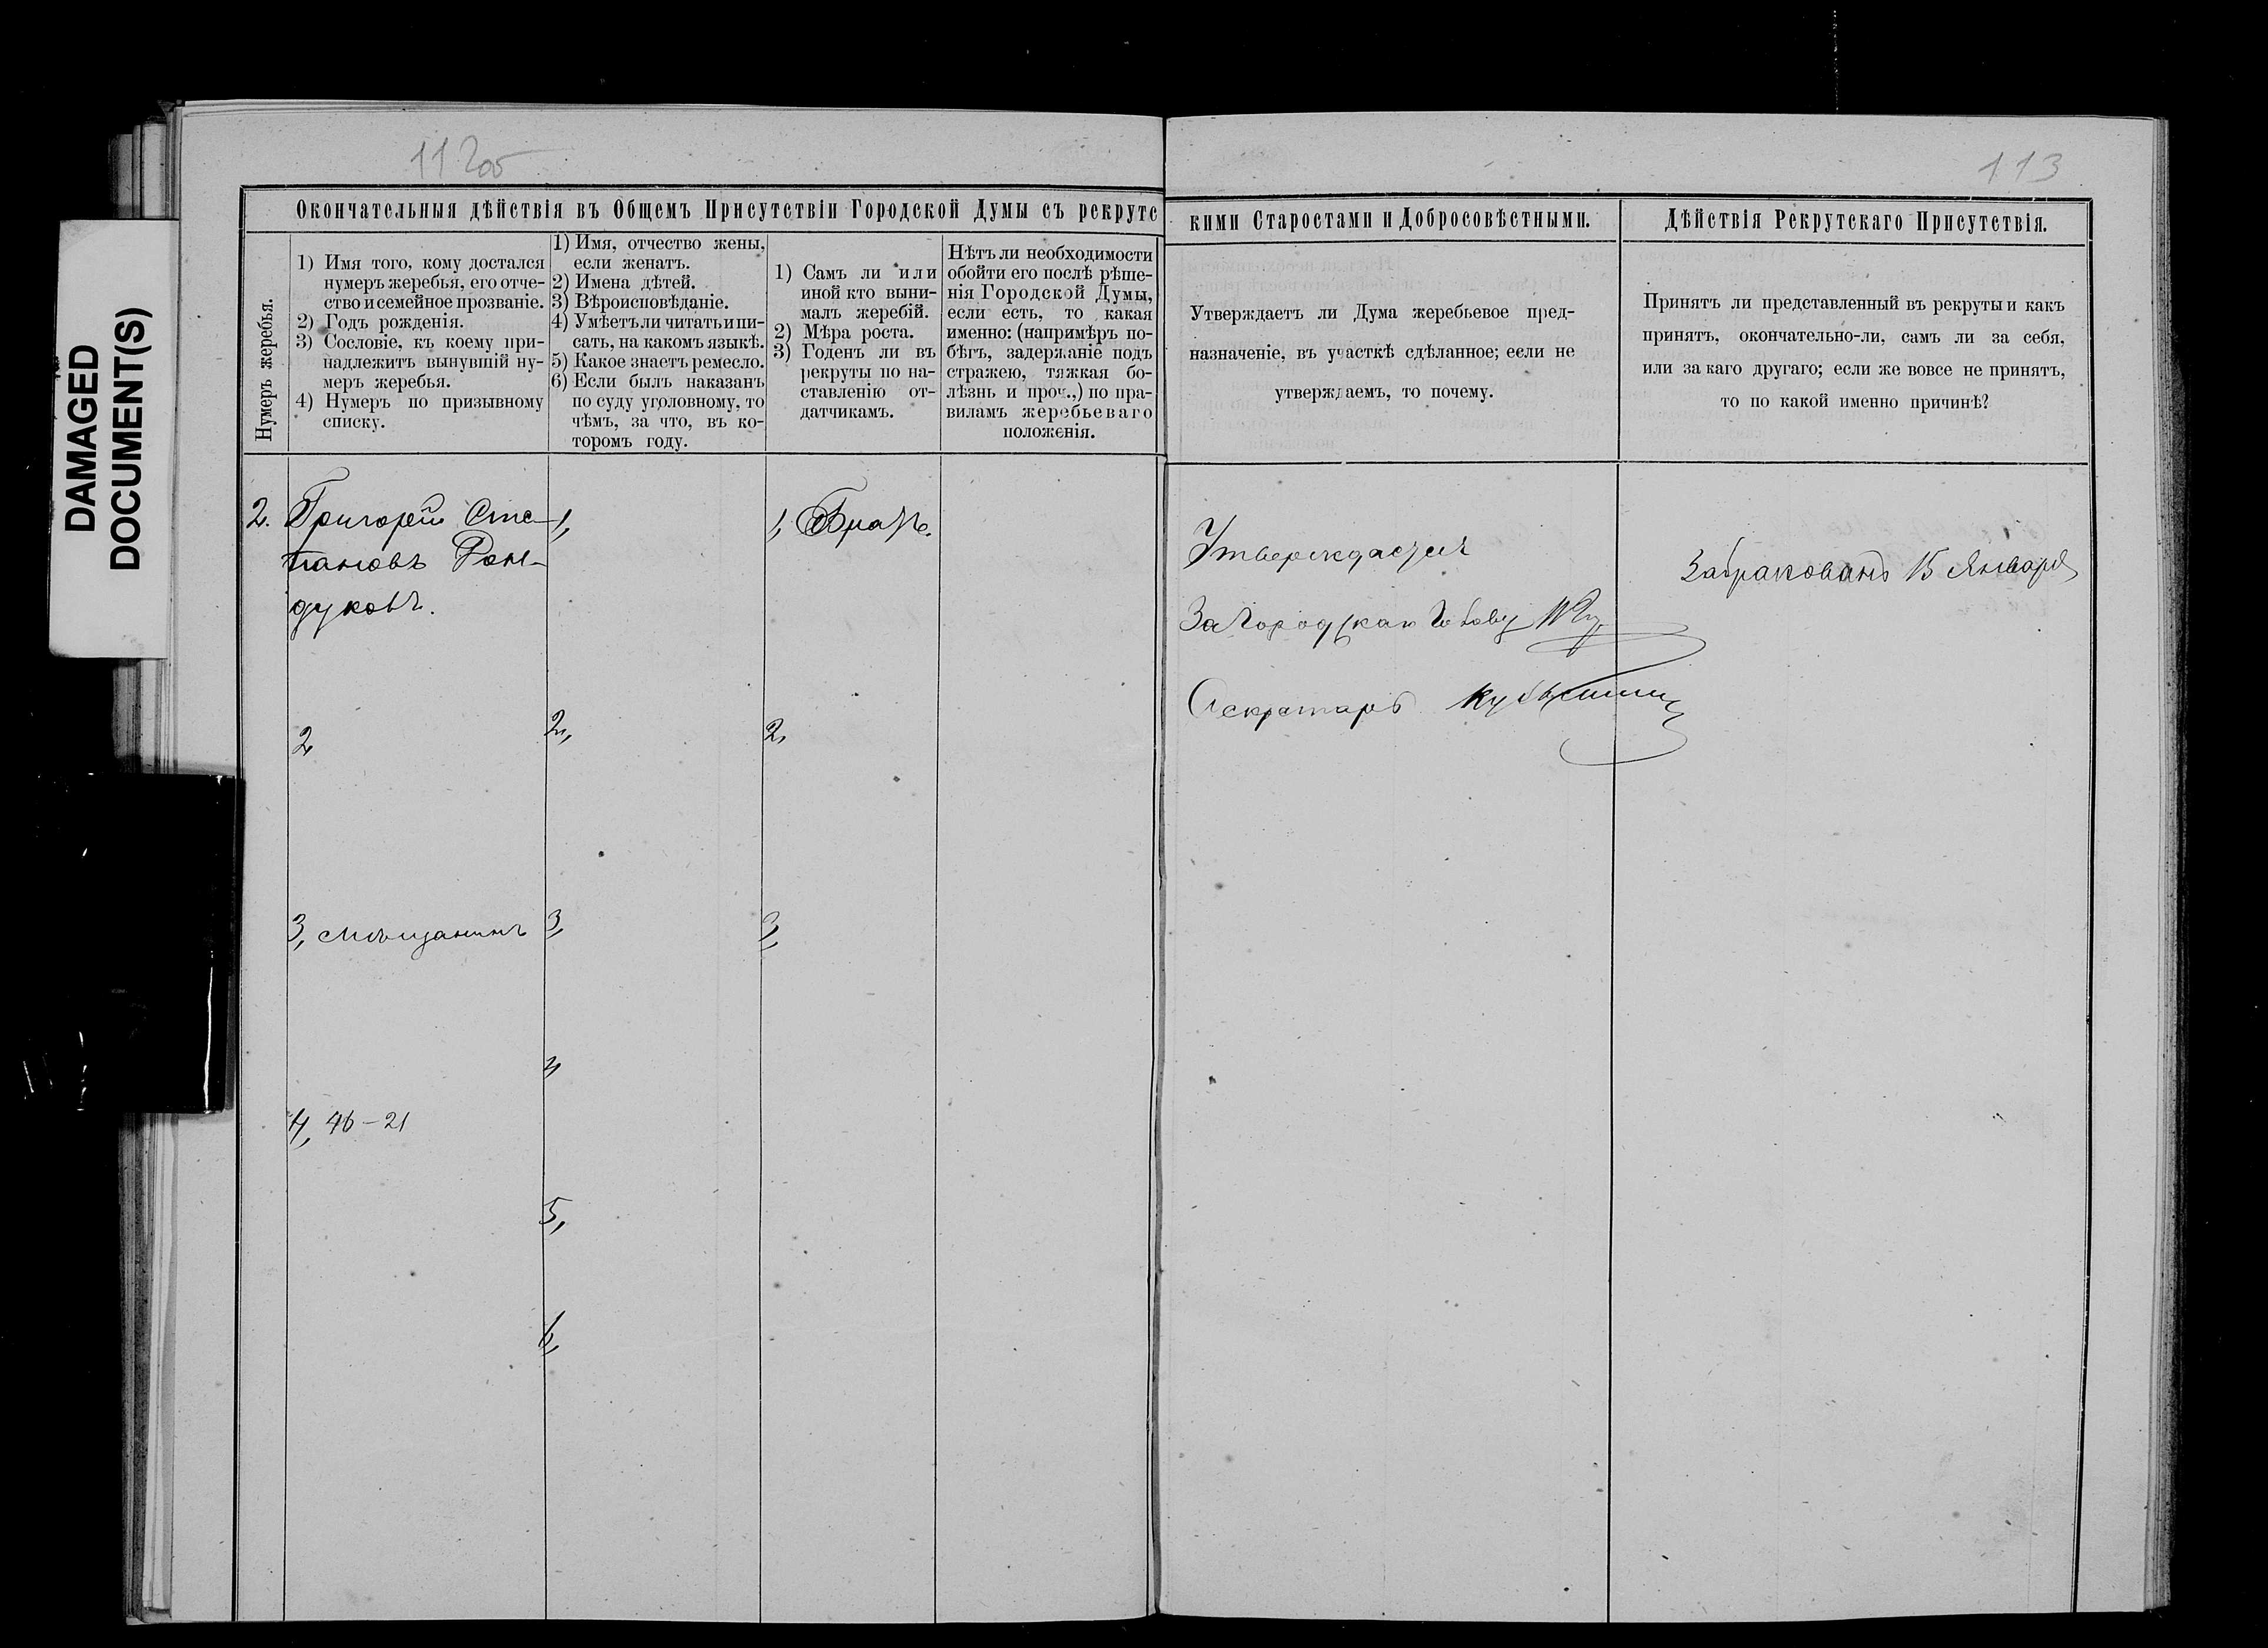 DAMAGED
DOCUMENT(S)
112об
113
Окончательныя дѣйствія въ Общемъ Присутствіи Городской Думы съ рекрутс
кими Старостами и Добросовѣстными.
Дѣйствія Рекрутскаго Присутствія.
Нумеръ жеребья.
1) Имя того, кому достался
нумеръ жеребья, его отче-
ство и семейное прозваніе.
2) Годъ рожденія.
3) Сословіе, къ коему при-
надлежитъ вынувшій ну-
меръ жеребья.
4) Нумеръ по призывному
списку.
1) Имя, отчество жены,
если женатъ.
2) Имена дѣтей.
3) Вѣроисповѣданіе.
4) Умѣетъ ли читать и пи-
сать, на какомъ языкѣ.
5) Какое знаетъ ремесло.
6) Если былъ наказанъ
по суду уголовному, то
чѣмъ, за что, въ ко-
торомъ году.
1) Самъ ли или
иной кто выни-
малъ жеребій.
2) Мѣра роста.
3) Годенъ ли въ
рекруты по на-
ставленію от-
датчикамъ.
Нѣтъ ли необходимости
обойти его послѣ рѣше-
нія Городской Думы,
если есть, то какая
именно: (напримѣръ по-
бѣгъ, задержаніе подъ
стражею, тяжкая бо-
лѣзнь и проч.,) по пра-
виламъ жеребьеваго
положенія.
Утверждаетъ ли Дума жеребьевое пред-
назначеніе, въ участкѣ сдѣланное; если не
утверждаемъ, то почему.
Принятъ ли представленный въ рекруты и какъ
принятъ, окончательно-ли, самъ ли за себя,
или за каго другаго; если же вовсе не принятъ,
то по какой именно причинѣ?
2. Григорей Сте-
пановъ
дуковъ.
2
3, мѣщанинъ
4, 46-21
1,
2,
3,
4
5,
6,
1, Братъ.
2,
3,
Утверждается
За Городскаго Голову
Секретарь
Забракованъ 15 Января